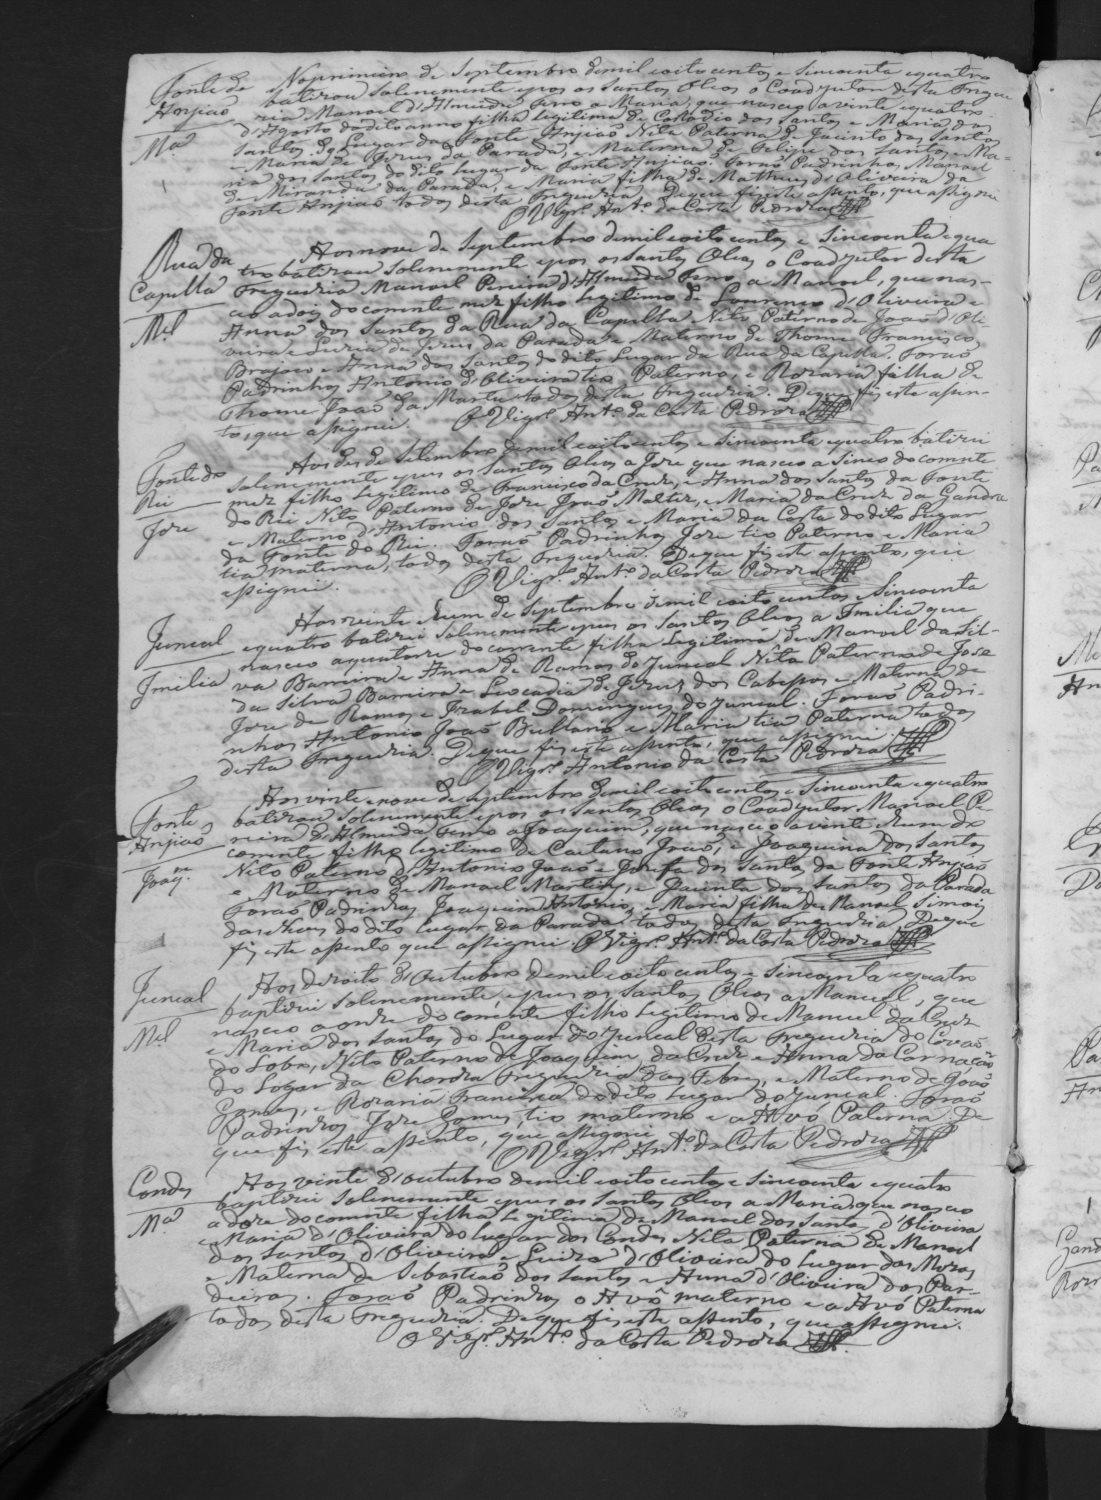 Fonte de
Anjiaõ
M.ª
No primeiro de Septembro demil oito centos e sincoenta equatro
batizou solenemente epos os Santos Oleos o Coadjutor desta Fregue
ria Manoel d'Almeida Ferro a Maria, que nasceo a vinte equatro
d'Agosto do dito anno filha legitima de Custodio dos Santos e Maria dos
Santos do Lugar da Fonte Anjiaõ Nita Paterna de Jacinto dos Santos
e Maria de Jezus da Parada, e Materna de Felipe dos Santos e Ma-
ria dos Santos do dito Lugar da Fonte Anjiaõ. Foraõ Padrinhos Manoel
de Miranda da Parada, e Maria filha de Matheus d'Oliveira da
Fonte Anjiaõ todos desta Fregueria. Deque fiz este asento, que assignei
O Vigr.º Ant.º da Costa Pedroza
Rua da
Capella
M.el
Aos nove de Septembro demil oito centos e sincoenta equa
tro batizou solenemente epos os Santos Oleos o Coadjutor desta
Fregueria Manoel Pereira d'Almeida Ferro a Manoel, que nas-
ceo a dois do corrente mez filho legitimo de Lourenço d'Oliveira e
Anna dos Santos da Rua da Capella Nito Paterno de Joaõ d'Oli
veira e Luzia de Jezus da Parada e Materno de Thome Francisco
e Anna dos Santos do dito Lugar da Rua da Capella. Foraõ
Padrinhos Antonio d'Oliveira tio Paterno, e Rozaria filha de
Thome Joaõ da Marta todos desta Fregueria. Deque fiz este asen-
to, que assignei. O Vigr.º Ant.º da Costa Pedroza
Fonte do
Rei
Joze
Aos dés de Setembro demil oito centos e sincoenta equatro batizei
solenemente epus os Santos Oleos a Joze que nasceo a sinco do corrente
mez filho legitimo de Francisco da Cruz, e Anna dos Santos da Fonte
do Rei Nito Paterno de Joze Joaõ Maltez, e Maria da Cruz da Gandra
e Materno d'Antonio dos Santos e Maria da Costa do dito Lugar
da Fonte do Rei. Foraõ Padrinhos Joze tio Paterno e Maria
tia materna, todos desta Fregueria. Deque fiz este asento, que
assignei. O Vigr.º Ant.º da Costa Pedroza
Juncal
Imilia
Aos vinte e hum de Septembro demil oito centos e Sincoenta
equatro batizei solenemente epus os Santos Oleos a Imilia que
nasceo aquatorze do corrente filha legitima de Manoel da Sil-
va Barreira e Anna de Ramos do Juncal Nita Paterna de Joze
da Silva Barreira e Leocadia de Jezus dos Cabessos e Materna de
Joze de Ramos e Izabel Domingues do Juncal. Foraõ Padri-
nhos Antonio Joaõ e Maria tia Paterna todos
desta Fregueria. Deque fiz este asento, que assignei.
O Vigr.º Antonio da Costa Pedroza
Fonte
Anjiaõ
Joaq.m
Aos vinte enove de Septembro demil oito centos e Sincoenta equatro
batizou solenemente epos os Santos Oleos o Coadjutor Manoel Pe-
reira d'Almeida Ferro a Joaquim, que nasceo a vinte e hum do
corrente filho legitimo de Caetano Joaõ, e Joaquina dos Santos
Nito Paterno d'Antonio Joaõ e Jozefa dos Santos da Fonte Anjiaõ
e Materno de Manoel Martins, e Jacinta dos Santos da Parada
Foraõ Padrinhos Joaquim Antonio, e Maria filha de Manoel Simois
das Neves do dito Lugar da Parada todos desta Fregueria, Deque
fiz este asento que assignei. O Vigr.º Ant.º da Costa Pedroza
Juncal
M.el
Aos dezoito d'Outubro demil oito centos e Sincoenta equatro
baptizei Solenemente, epus os Santos Oleos a Manuel, que
nasceo a onze do corrente filho legitimo de Manuel da Cruz
e Maria dos Santos do Lugar do Juncal desta Fregueria do Covaõ
do Lobo, Nito Paterno de Joaquim da Cruz e Anna da Carnaçaõ
do Logar da Chorza Fregueria das Febres, e Materno de Joaõ
Gomes, e Rozaria Francisca do dito Lugar do Juncal. Foraõ
Padrinhos Joze Gomes, tio materno e a Avó Paterna. De
que fiz este asento, que assignei
O Vigr.º Ant.º da Costa Pedroza
Condes
M.ª
Aos vinte d'Outubro demil oito centos e sincoenta equatro
baptizei Solenemente epus os Santos Oleos a Maria que nasceo
a doze do corrente filha legitima de Manoel dos Santos d'Oliveira
e Maria d'Oliveira do Lugar dos Condes Nita Paterna de Manoel
dos Santos d'Oliveira e Luiza d'Oliveira do Lugar das Mezas
e Materna de Sebastiaõ dos Santos e Anna d'Oliveira dos Par-
deiros. Foraõ Padrinhos o Avô materno e a Avó Paterna
todos desta Fregueria. Deque fiz este assento, que assignei.
O Vigr.º Ant.º da Costa Pedroza